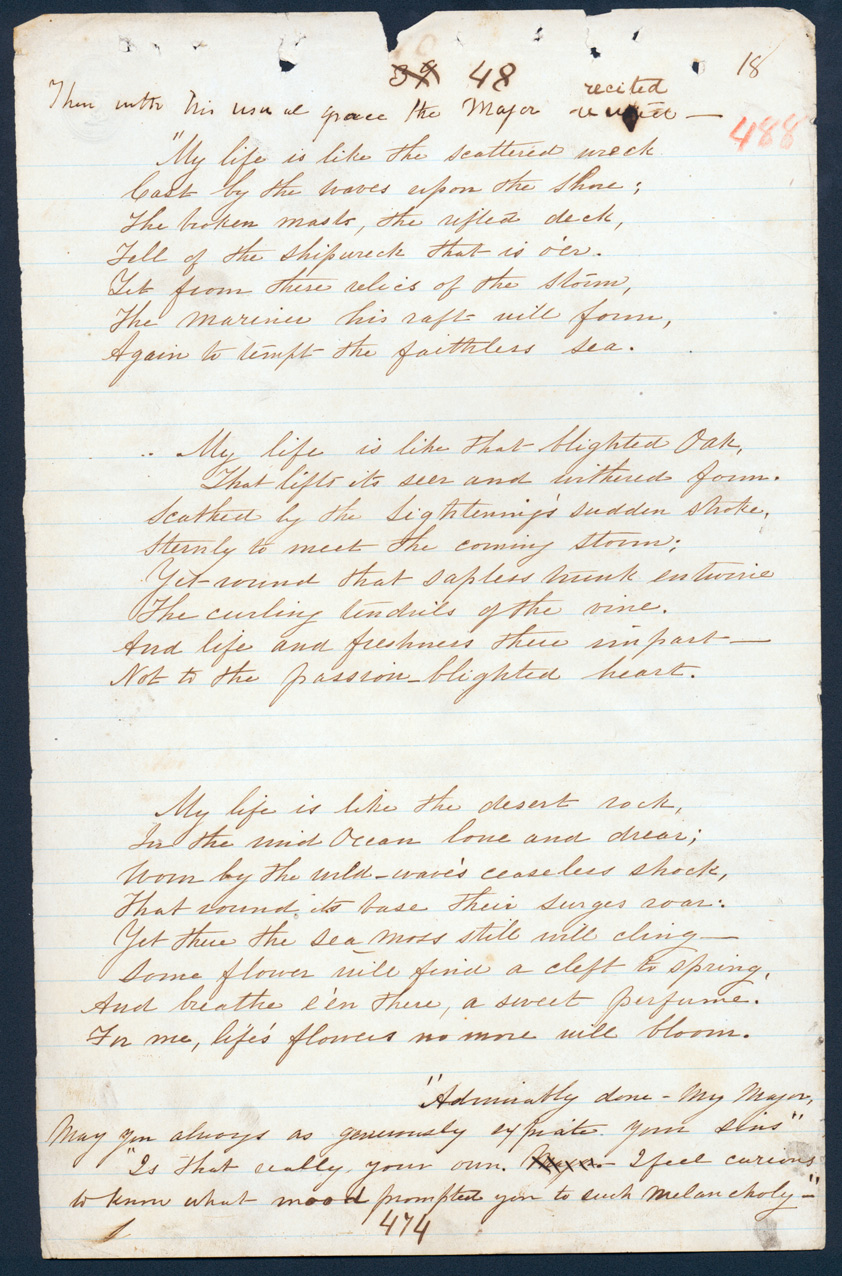 39 48 18
recited
Then with his usual grace the Major —
488
"My life is like the scattered wreck
Cast by the waves upon the shore;
The broken masts, the rifted deck,
Tell of the shipwreck that is o'er.
Yet from these relics of the storm,
The mariner his raft will form,
Again to tempt the faithless sea.
My life is like that blighted Oak,
That lifts its seer and withered form.
Scathed by the Lightening's sudden stroke,
Sternly to meet the coming storm;
Yet round that sapless trunk entwine
The curling tendrils of the vine.
And life and freshness there impart—
Not to the passion-blighted heart.
My life is like the desert rock,
In the mid Ocean lone and drear;
Worn by the wild-wave's ceaseless shock,
That round its base their surges roar:
Yet there the sea moss still will cling—
Some flower will find a cleft to spring,
And breathe e'en there, a sweet perfume.
For me, life's flowers no more will bloom.
"Admirably done - My Major,
May you always as generously expiate your sins"
"Is that really your own. - I feel curious
to know what mood prompted you to such melancholy—"
474